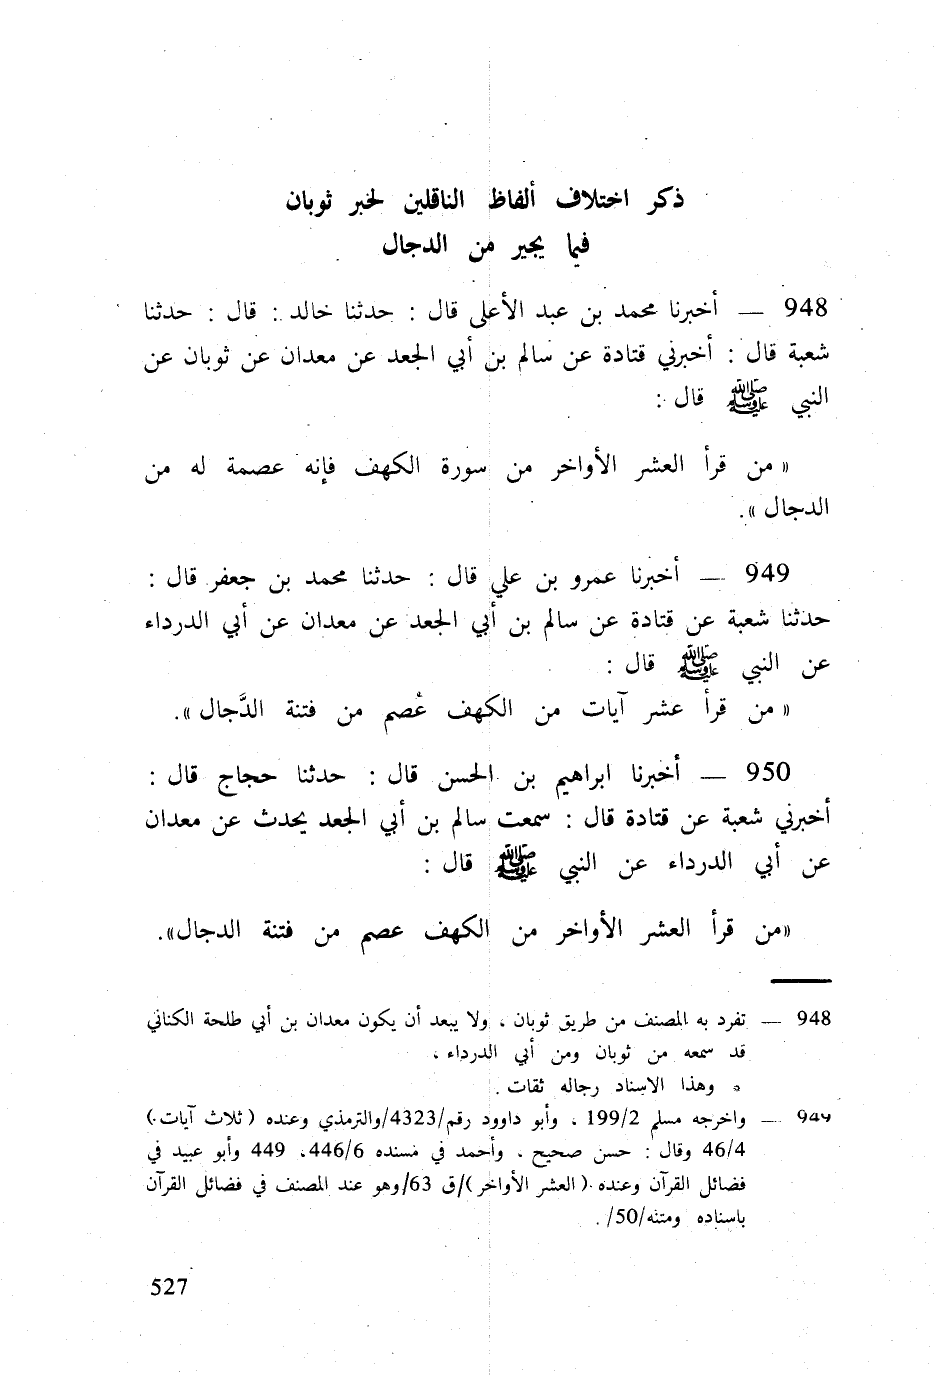 ذكر اختلاف ألفاظ الناقلين لخبر ثوبان
فيما يجير من الدجال
948 — أخبرنا محمد بن عبد الأعلى قال : حدثنا خالد : قال : حدثنا
شعبة قال : أخبرني قتادة عن سالم بن أبي الجعد عن معدان عن ثوبان عن
النبي ﷺ قال :
« من قرأ العشر الأواخر من سورة الكهف فإنه عصمة له من
الدجال ».
949 — أخبرنا عمرو بن علي قال : حدثنا محمد بن جعفر قال :
حدثنا شعبة عن قتادة عن سالم بن أبي الجعد عن معدان عن أبي الدرداء
عن النبي ﷺ قال :
« من قرأ عشر آيات من الكهف عُصم من فتنة الدَّجال ».
950 — أخبرنا ابراهيم بن الحسن قال : حدثنا حجاج قال :
أخبرني شعبة عن قتادة قال : سمعت سالم بن أبي الجعد يحدث عن معدان
عن أبي الدرداء عن النبي ﷺ قال :
«من قرأ العشر الأواخر من الكهف عصم من فتنة الدجال».
948 — تفرد به المصنف من طريق ثوبان ، ولا يبعد أن يكون معدان بن أبي طلحة الكناني
قد سمعه من ثوبان ومن أبي الدرداء ،
* وهذا الاسناد رجاله ثقات .
949 — واخرجه مسلم 199/2 ، وأبو داوود رقم/4323/والترمذي وعنده ( ثلاث آيات )
46/4 وقال : حسن صحيح ، وأحمد في مسنده 446/6، 449 وأبو عبيد في
فضائل القرآن وعنده ( العشر الأواخر )/ق 63/وهو عند المصنف في فضائل القرآن
باسناده ومتنه/50/ .
527